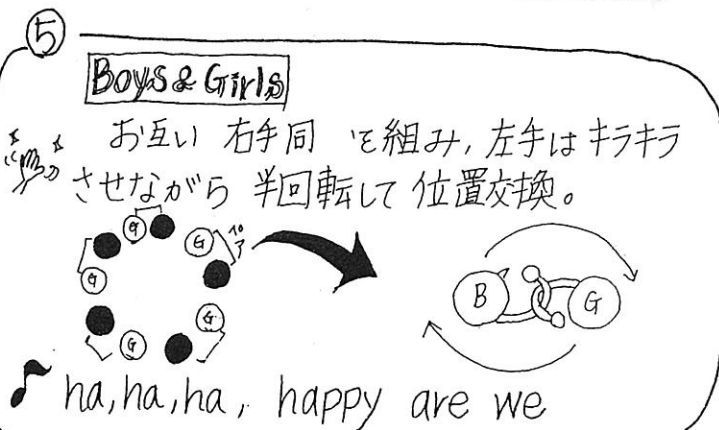 ⑤
Boys & Girls
お互い 右手同 を組み, 左手はキラキラ
させながら 半回転して 位置交換。
G
G
ペア
G
G
G
B
G
ha, ha, ha, happy are we